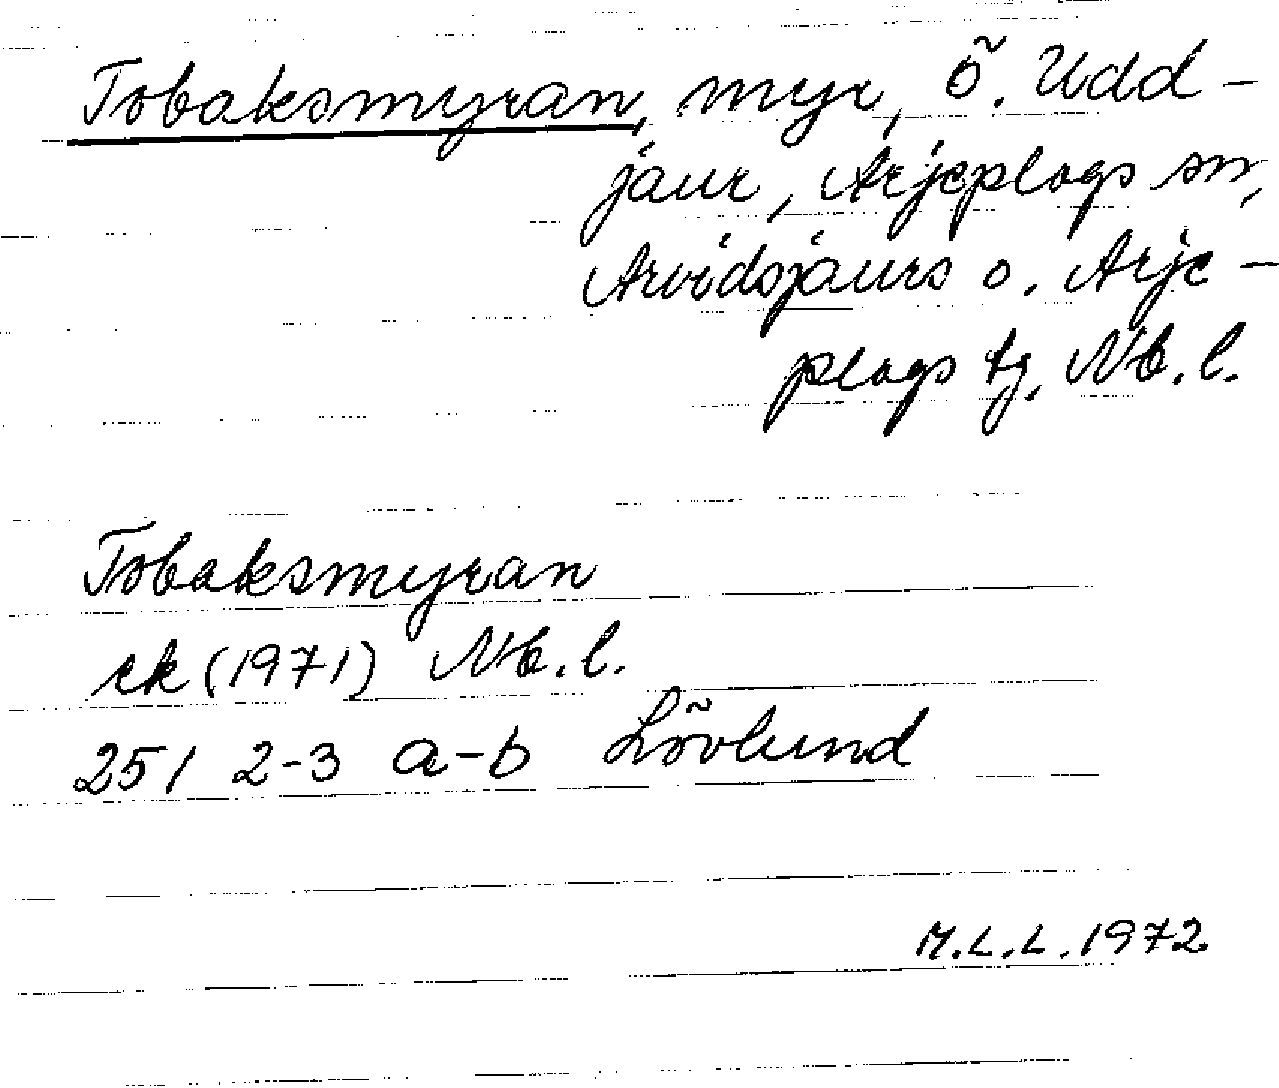 Tobaksmyran, myr, Ö. Udd-
jaur, Arjeplogs sn,
Arvidsjaurs o. Arje-
plogs tg, Nb. l.
Tobaksmyran
ek (1971) Nb. l.
251 2-3 a-b Lövlund
M.L.L. 1972